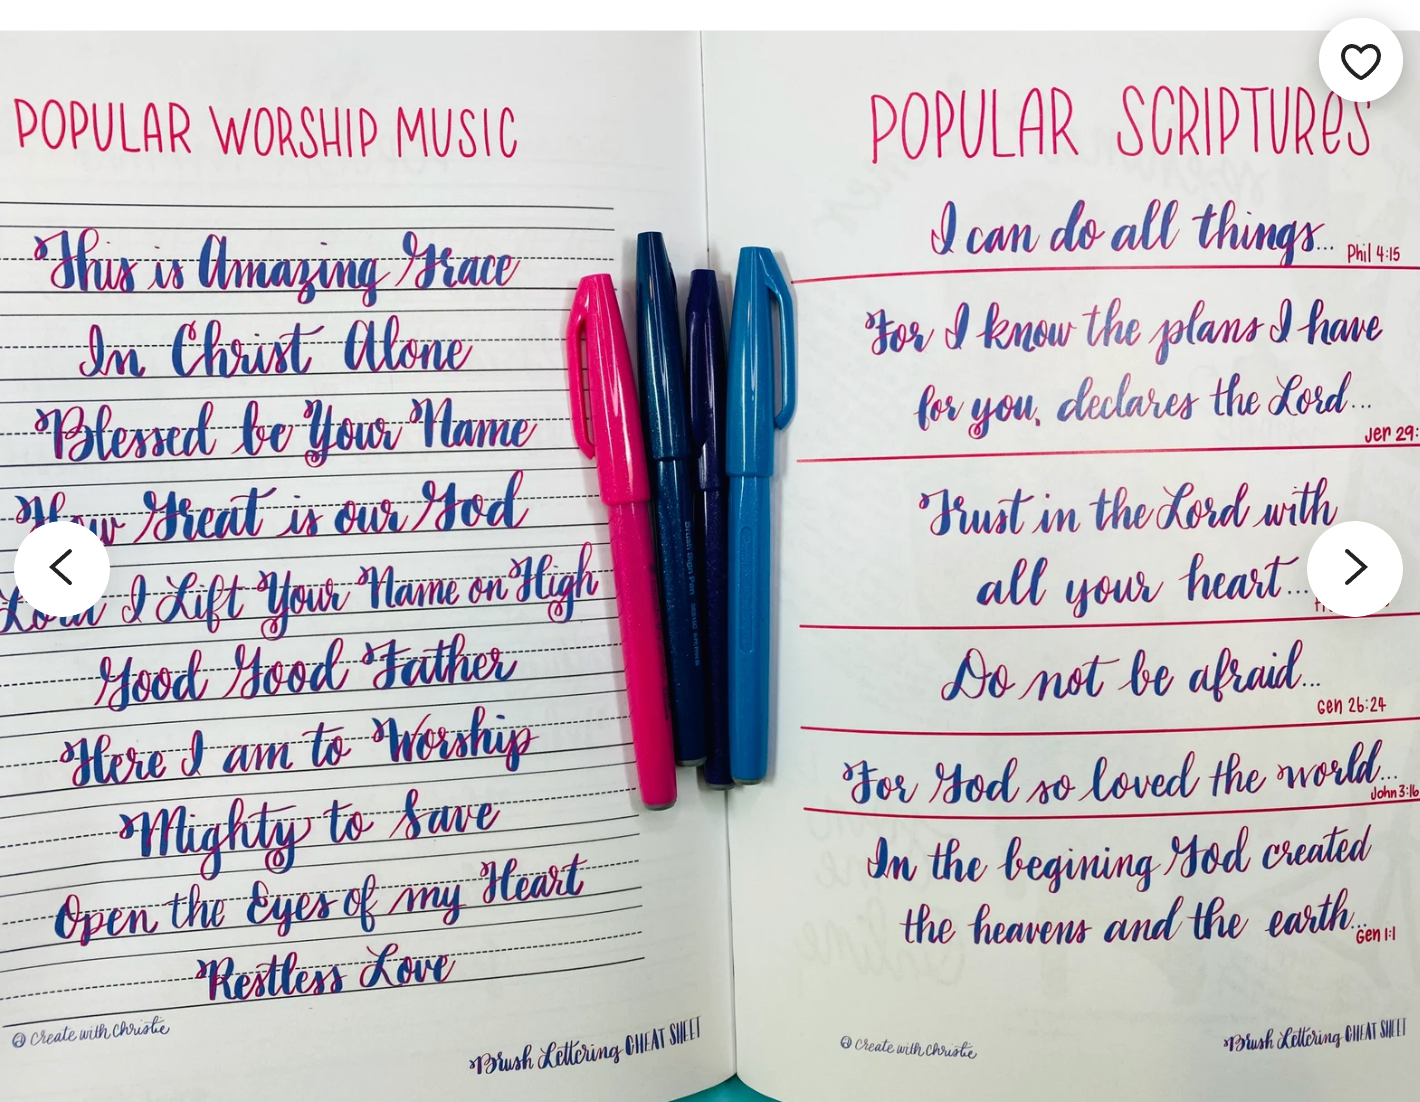 POPULAR WORSHIP MUSIC
This is Amazing Grace
In Christ Alone
Blessed be Your Name
How Great is our God
Lord I Lift Your Name on High
Good Good Father
Here I am to Worship
Mighty to Save
Open the Eyes of my Heart
Restless Love
© Create with Christie
Brush Lettering CHEAT SHEET
POPULAR SCRIPTURES
I can do all things...
Phil 4:15
For I know the plans I have
for you, declares the Lord...
Jer 29:
Trust in the Lord with
all your heart...
Do not be afraid...
Gen 26:24
For God so loved the world...
John 3:16
In the begining God created
the heavens and the earth...
Gen 1:1
© Create with Christie
Brush Lettering CHEAT SHEET
Brush Sign Pen